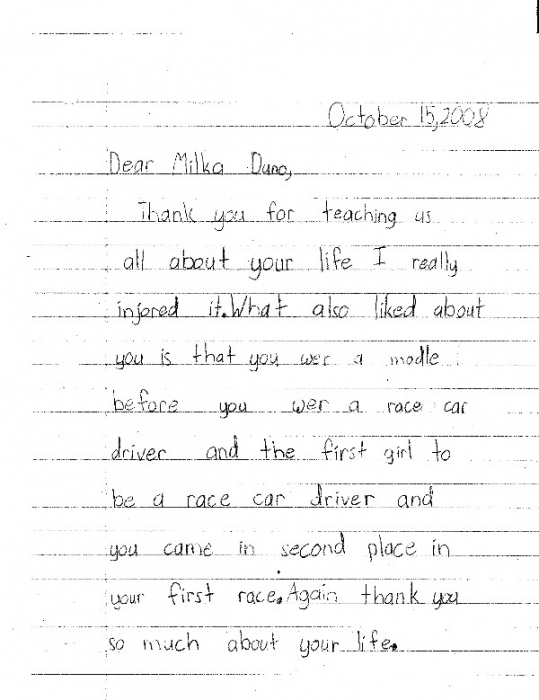 October 15,2008
Dear Milka Duno,
Thank you for teaching us
all about your life I really
injored it. What also liked about
you is that you wer a modle
before you wer a race car
driver and the first girl to
be a race car driver and
you came in second place in
your first race. Again thank you
so much about your life.